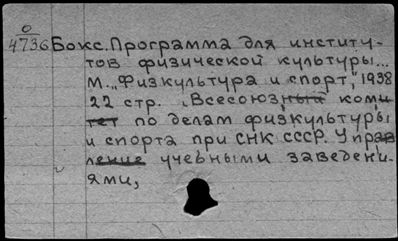 О
4736 Бокс. Программа для институ-
тов физической культуры...
М. „Физкультура и спорт," 1938
22 стр. „Всесоюзный коми
тет по делам физкультуры
и спорта при СНК СССР. Управ
ление учебными заведени-
ями,